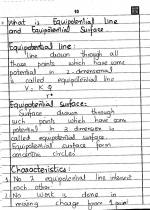 What is Equipotential line
and Equipotential Surface
Equipotential line:
line drawn through all
those points which have same
potential in 2-dimensional
is called equipotential line
V = K Q
Equipotential surfaces:
Surface drawn through
such points which have same
potential in 3 dimension is
called equipotential surface.
Equipotential surface form
circles
Characteristics:
1. No 2 equipotential line intersect
each other
2. No work is done in
moving charge from 1 point